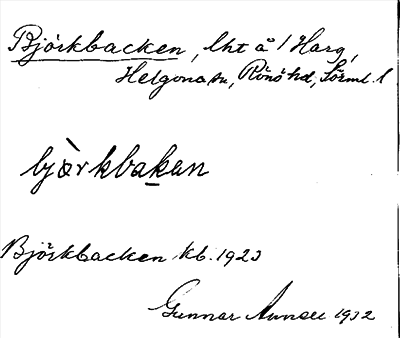 Björkbacken, lht å 1 Harg,
Helgona sn, Rönö hd, Sörml. l
bjàrkbakan
Björkbacken kb. 1923
Gunnar 1932